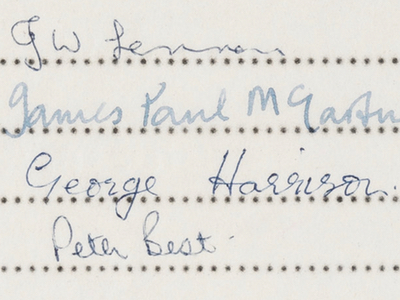 J W Lennon
James Paul McCartn
George Harrison.
Peter Best.